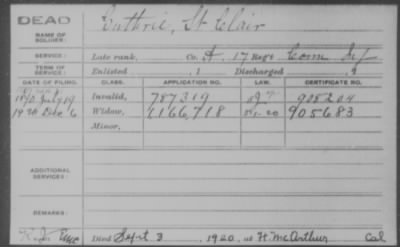 DEAD Guthrie, St Clair
NAME OF SOLDIER:
SERVICE: Late rank, Co. A, 17 Reg't Conn Inf
TERM OF SERVICE: Enlisted , 1 Discharged , 1
DATE OF FILING. CLASS. APPLICATION NO. LAW. CERTIFICATE NO.
1890 July 19 Invalid, 787319 905204
1920 Dec 6 Widow, 1166,718 905683
Minor,
ADDITIONAL SERVICES:
REMARKS:
Died Sept 3, 1920, at Ft McArthur Cal